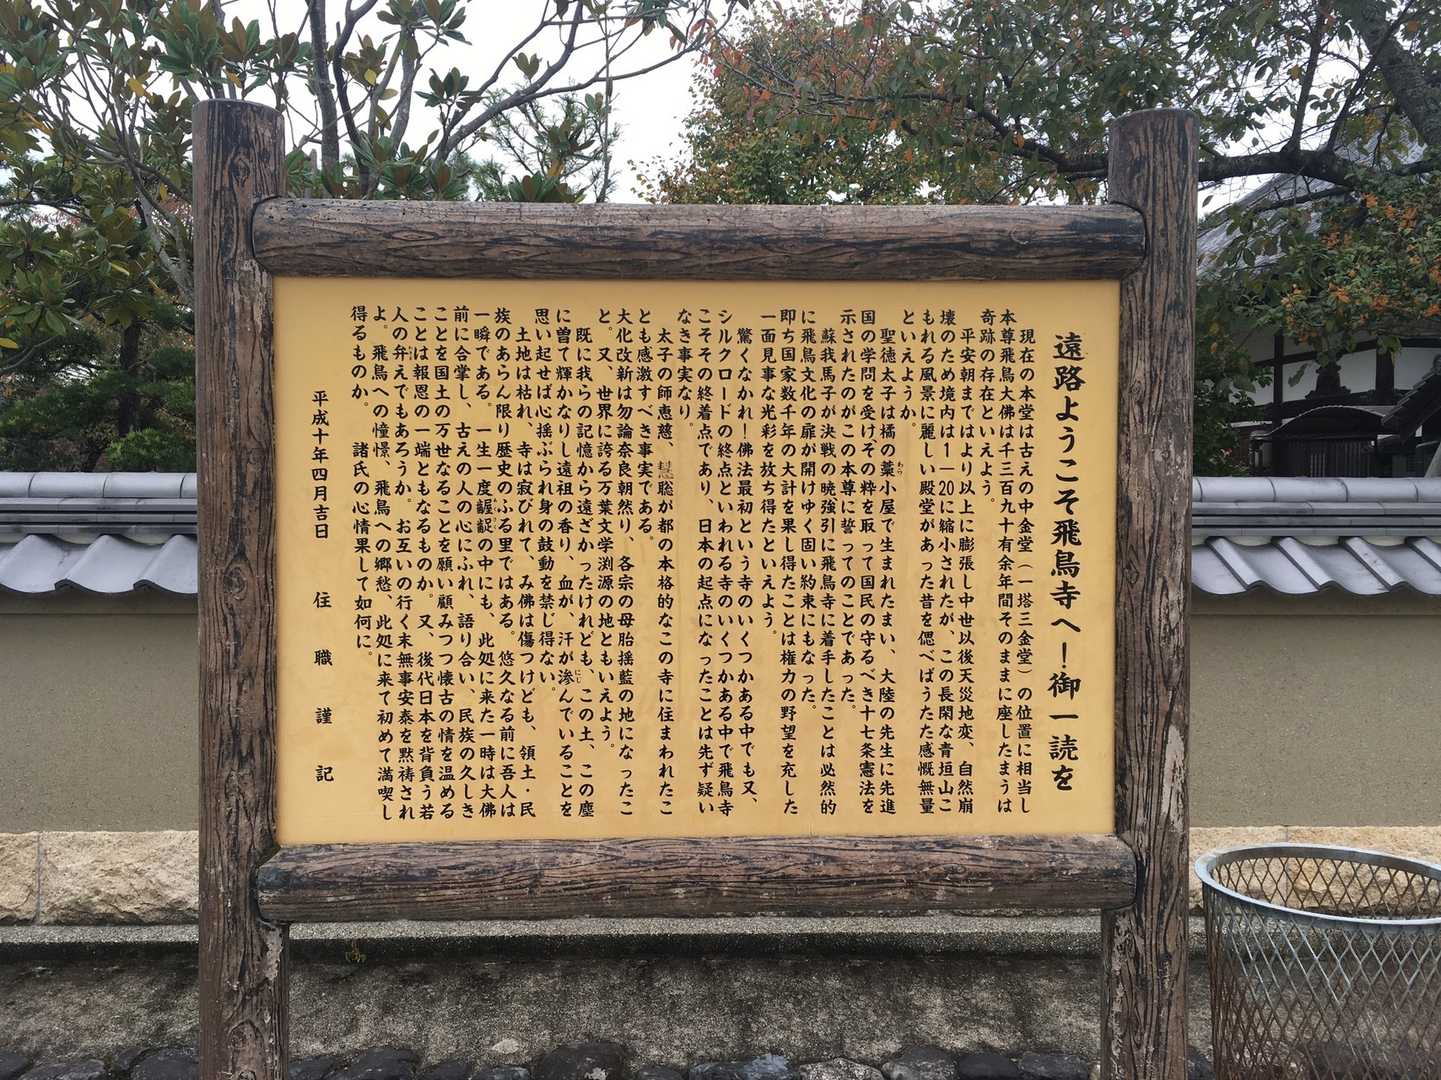 遠路ようこそ飛鳥寺へ！御一読を
現在の本堂は古えの中金堂（一塔三金堂）の位置に相当し
本尊飛鳥大佛は千三百九十有余年間そのままに座したまうは
奇跡の存在といえよう。
平安朝まではより以上に膨張し中世以後天災地変、自然崩
壊のため境内は1—20に縮小されたが、この長閑な青垣山こ
もれる風景に麗しい殿堂があった昔を偲べばうたた感慨無量
といえようか。
聖徳太子は橘の藁小屋で生まれたまい、大陸の先生に先進
わら
国の学問を受け、その粋を取って国民の守るべき十七条憲法を
示されたのがこの本尊に誓ってのことであった。
蘇我馬子が決戦の暁強引に飛鳥寺に着手したことは必然的
に飛鳥文化の扉が開けゆく固い約束にもなった。
即ち国家数千年の大計を果し得たことは権力の野望を充した
一面見事な光彩を放ち得たといえよう。
驚くなかれ！佛法最初という寺のいくつかある中でも又、
シルクロードの終点といわれる寺のいくつかある中で飛鳥寺
こそその終着点であり、日本の起点になったことは先ず疑い
なき事実なり。
太子の師恵慈、慧聡が都の本格的なこの寺に住まわれたこ
とも感激すべき事実である。
大化改新は勿論奈良朝然り、各宗の母胎揺藍の地になったこ
と。又、世界に誇る万葉文学渕源の地ともいえよう。
既に我らの記憶から遠ざかったけれども、この土、この塵
に曽て輝かなりし遠祖の香り、血が、汗が滲んでいることを
にじ
思い起せば心揺ぶられ身の鼓動を禁じ得ない。
土地は枯れ、寺は寂びれて、み佛は傷つけども、領土・民
族のあらん限り歴史のふる里ではある。悠久なる前に吾人は
一瞬である。一生一度齷齪の中にも、此処に来た一時は大佛
前に合掌し、古えの人の心にふれ、語り合い、民族の久しき
ことを国土の万世なることを願い顧みつつ懐古の情を温める
ことは報恩の一端ともなるものか。又、後代日本を背負う若
人の弁えでもあろうか。お互いの行く末無事安泰を黙祷され
よ。飛鳥への憧憬、飛鳥への郷愁、此処に来て初めて満喫し
得るものか。諸氏の心情果して如何に。
平成十年四月吉日　住職謹記